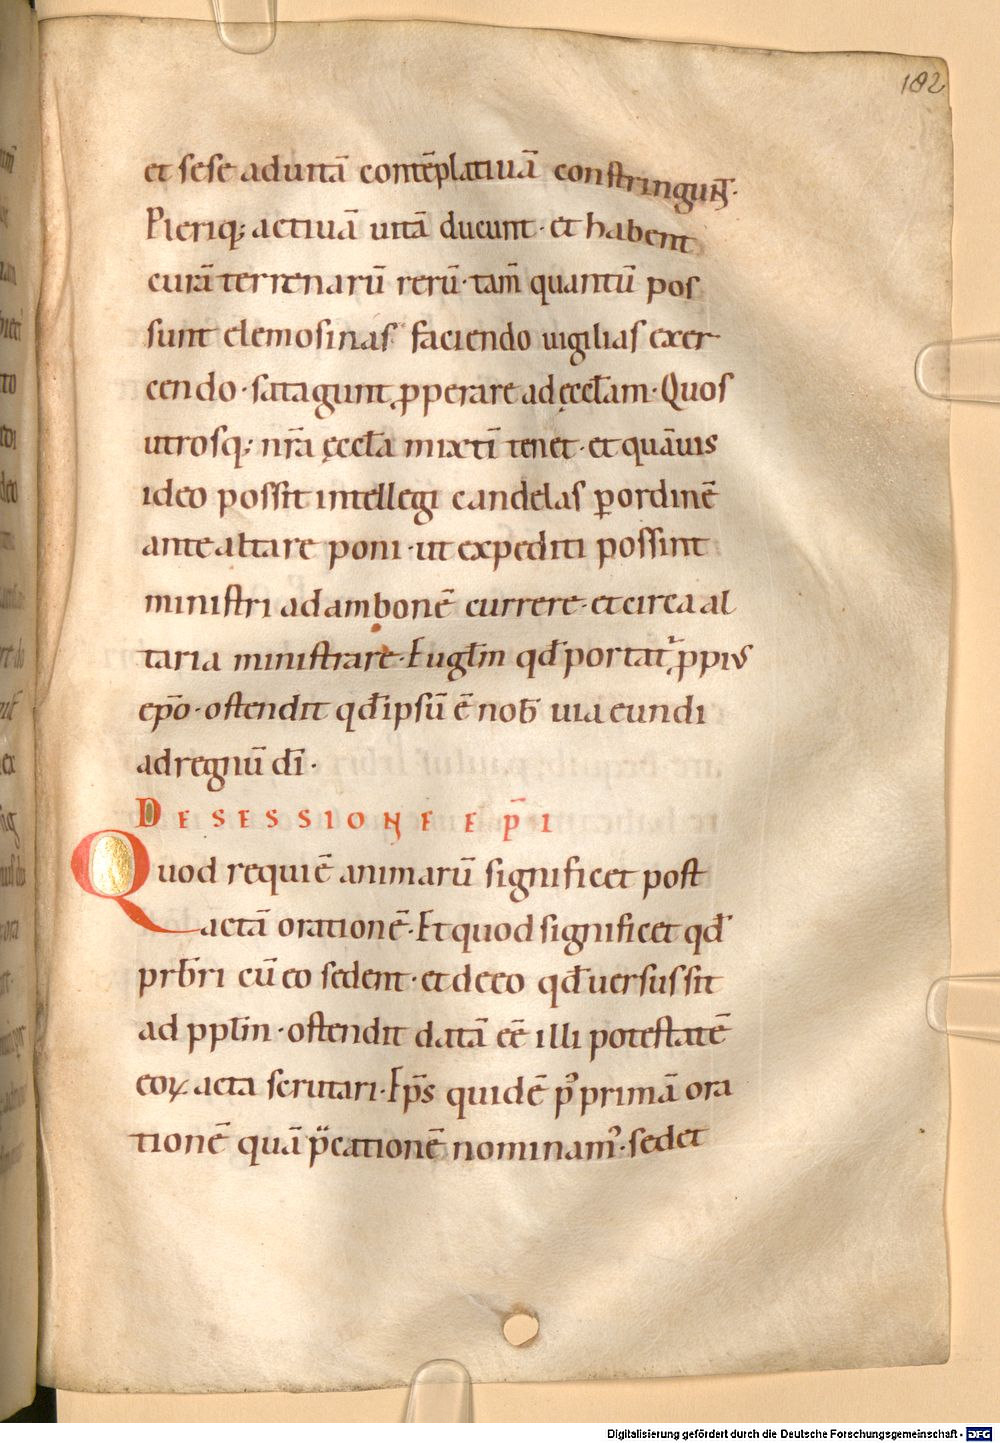 182
et sese aduitā contēplatiuā constringunt·
Pleriq; actiuā uitā ducunt · et habent
curā terrenarū rerū · tam̄ quantū pos
sunt elemosinas faciendo uigilias exer
cendo · satagunt ꝓperare ad ęccl̄am · Quos
utrosq; nr̄a ęccl̄a mixtī tenet · et quāuis
ideo possit intellegi candelas ꝑ ordinē
ante altare poni · ut expediti possint
ministri ad ambonē currere · et circa al
taria ministrare · Eugl̄m qđ portat᷑ ꝓpius
ep̄o · ostendit qđ ipsū ē nob̄ uia eundi
ad regnū dī ·
DE SESSIONE EP̄I
Quod requiē animarū significet post
actā orationē · Et quod significet qđ
prb̄ri cū eo sedent · et de eo qđ uersus sit
ad ppl̄m · ostendit datā eē illi potestatē
eoꝝ acta scrutari · Ep̄s quidē pꝰ primā ora
tionē quā p̄cationē nominamꝰ · sedet
Digitalisierung gefördert durch die Deutsche Forschungsgemeinschaft - DFG